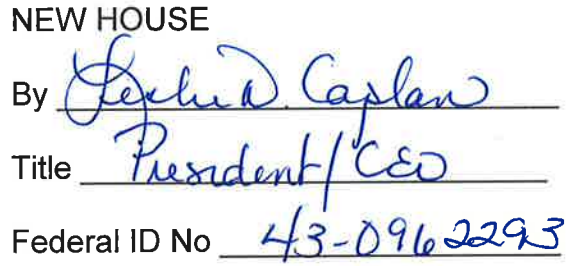 NEW HOUSE
By Leslie D. Caplan
Title President/CEO
Federal ID No 43-0962293